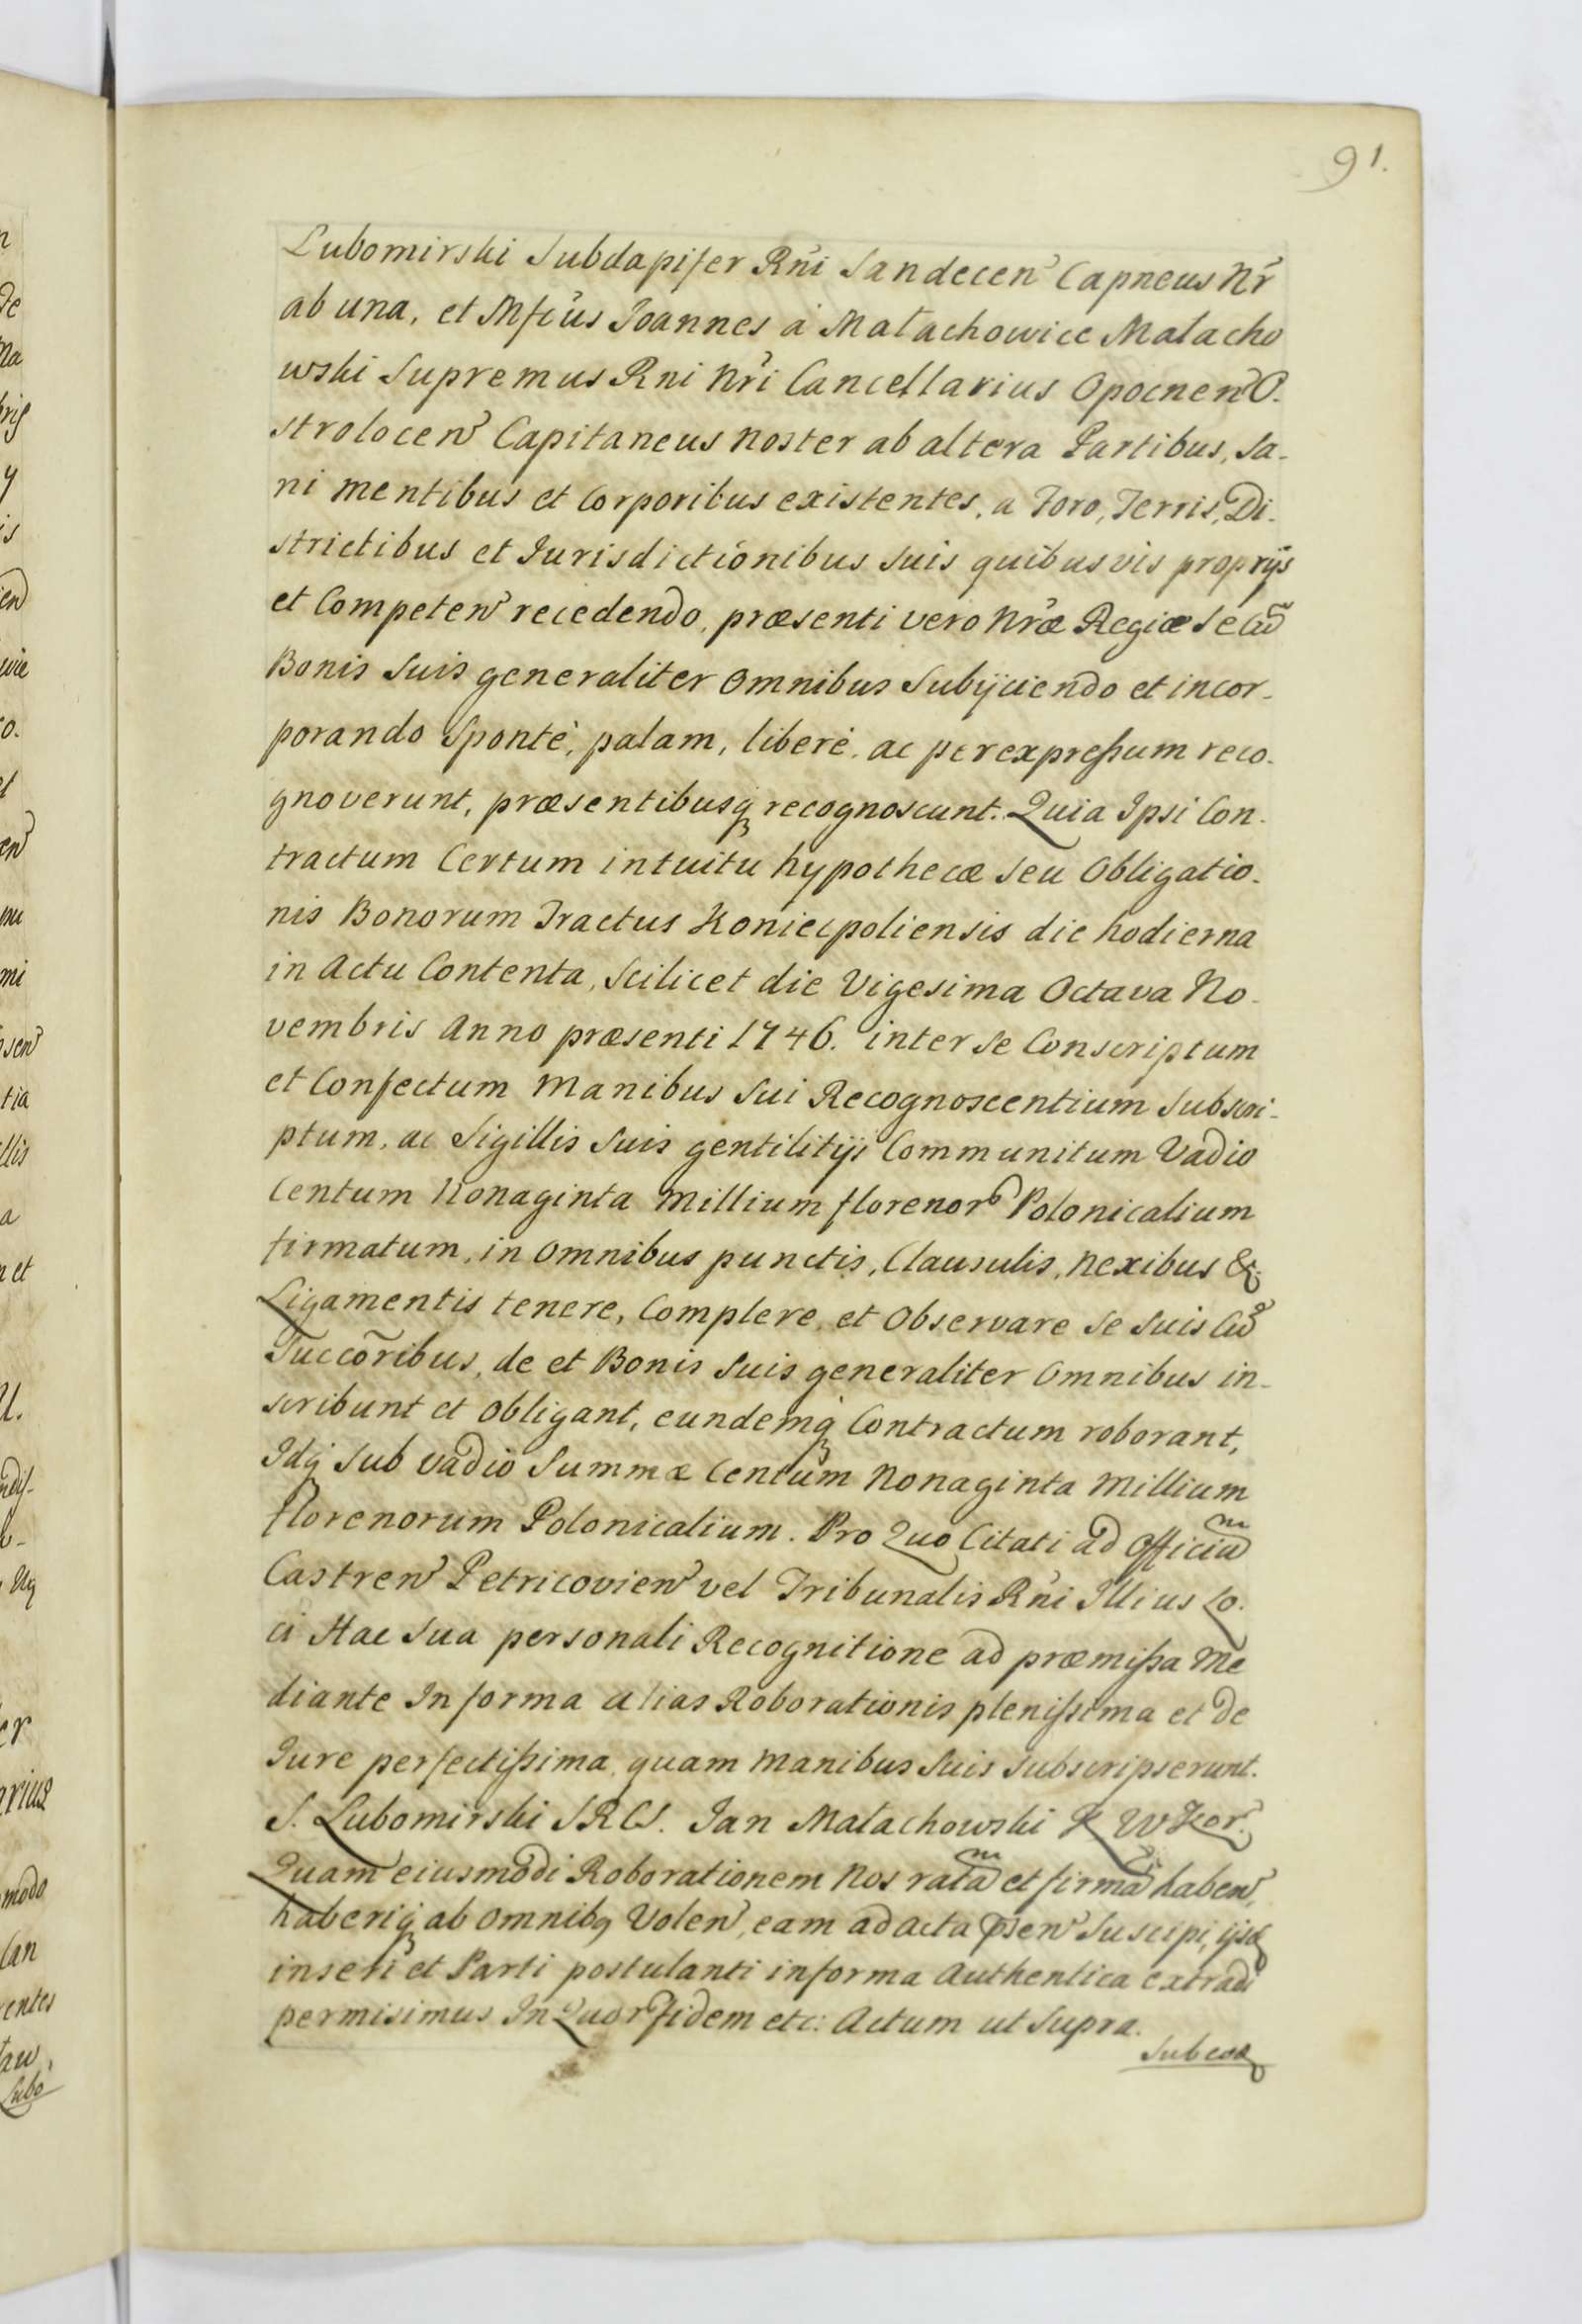 91.
Lubomirski Subdapifer Rñi Sandecen Capneus Nr̃
ab una, et Mfcus Joannes à Małachowice Małacho
wski Supremus Rni Nr̃i Cancellarius Opocnen O.
strolocen Capitaneus noster ab altera Partibus, Sa-
ni mentibus et Corporibus existentes, a Foro, Terris, Di-
strictibus et Jurisdictionibus suis quibusvis proprijs
et Competen recedendo, præsenti vero Nræ Regiæ se Cũ
Bonis Suis generaliter omnibus Subijciendo et incor-
porando Spontè, palam, liberè, ac per expressum reco-
gnoverunt, præsentibusq recognoscunt. Quia Ipsi Con-
tractum Certum intuitu hypothecæ seu Obligatio-
nis Bonorum Tractus Koniecpoliensis die hodierna
in Actu Contenta, Scilicet die Vigesima Octava No-
vembris Anno præsenti 1746. inter se Conscriptum
et Confectum Manibus Sui Recognoscentium Subscri-
ptum, ac Sigillis Suis gentilitijs Communitum Vadio
Centum Nonaginta Millium florenor Polonicalium
firmatum, in omnibus punctis, Clausulis, nexibus &
Ligamentis tenere, Complere, et Observare se suis Cũ
Succõribus, de et Bonis Suis generaliter omnibus in-
scribunt et obligant, eundemq Contractum roborant,
Idq sub vadio Summæ Centum Nonaginta Millium
florenorum Polonicalium. Pro Quo Citati ad Officia
Castren Petricovien vel Tribunalis Rñi Illius Lo-
ci Hac Sua personali Recognitione ad præmissa Me
diante In forma alias Roborationis plenissima et de
Jure perfectissima, quam Manibus Suis subscripserunt.
S. Lubomirski SRCS. Jan Małachowski K W Kor.
Quam eiusmodi Roborationem Nos ratã et firmã haben,
haberiq ab omnibq Volen, eam ad acta pñsen Suscipi, ijsq
inseri et Parti postulanti in forma Authentica extradi
permisimus. In Quor fidem etc: Actum ut Supra.